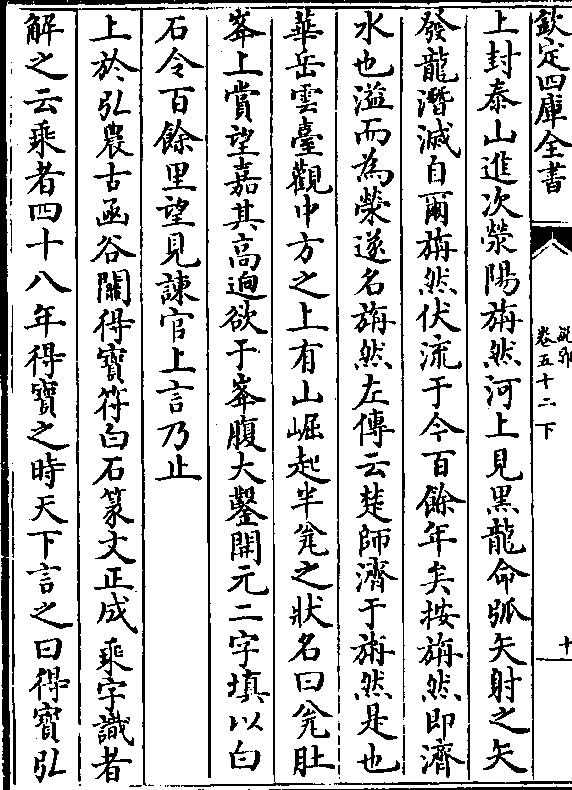 欽定四庫全書
說郛
卷五十二下
十
上封泰山進次滎陽旃然河上見黑龍命弧矢射之矢
發龍潛滅自爾旃然伏流于今百餘年矣按旃然即濟
水也溢而為滎遂名旃然左傳云楚師濟于旃然是也
華岳雲臺觀中方之上有山崛起半瓮之狀名曰瓮肚
峯上賞望嘉其高逈欲于峯腹大鑿開元二字填以白
石令百餘里望見諫官上言乃止
上於弘農古函谷關得寶符白石篆文正成乘字識者
解之云乘者四十八年得寶之時天下言之曰得寶弘